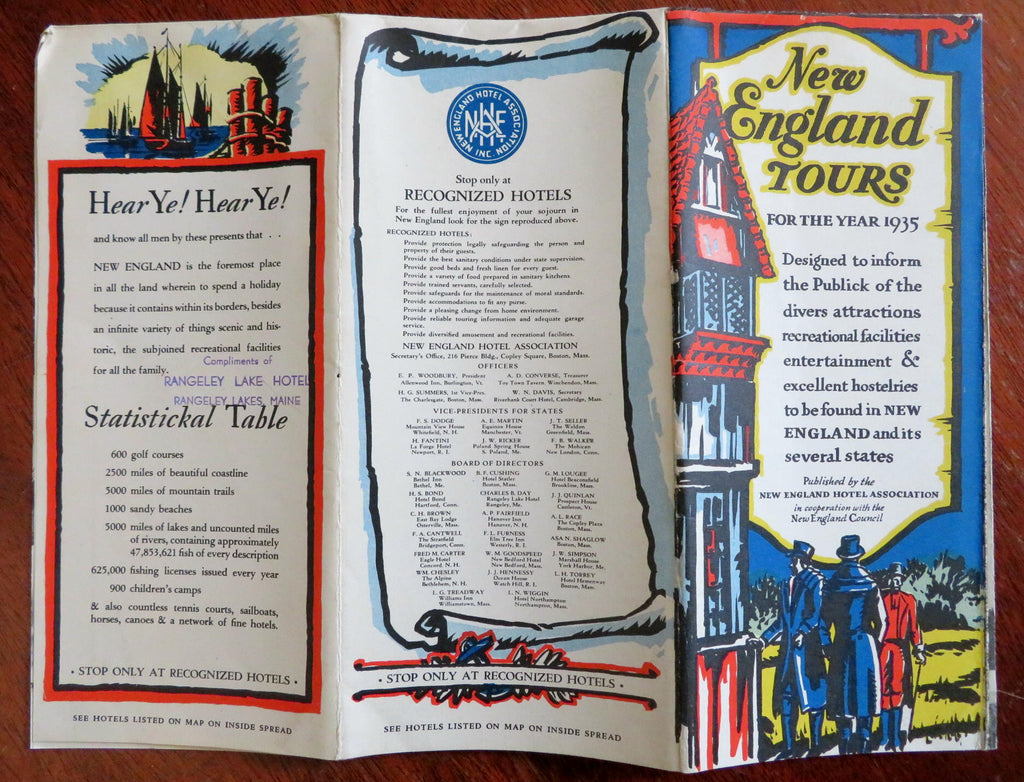 Hear Ye! Hear Ye!
and know all men by these presents that . .
NEW ENGLAND is the foremost place
in all the land wherein to spend a holiday
because it contains within its borders, besides
an infinite variety of things scenic and his-
toric, the subjoined recreational facilities
for all the family.
Compliments of
RANGELEY LAKE HOTEL
RANGELEY LAKES, MAINE
Statistickal Table
600 golf courses
2500 miles of beautiful coastline
5000 miles of mountain trails
1000 sandy beaches
5000 miles of lakes and uncounted miles
of rivers, containing approximately
47,855,621 fish of every description
625,000 fishing licenses issued every year
900 children's camps
& also countless tennis courts, sailboats,
horses, canoes & a network of fine hotels.
· STOP ONLY AT RECOGNIZED HOTELS ·
SEE HOTELS LISTED ON MAP ON INSIDE SPREAD
NEW ENGLAND HOTEL ASSOCIATION INC.
Stop only at
RECOGNIZED HOTELS
For the fullest enjoyment of your sojourn in
New England look for the sign reproduced above.
RECOGNIZED HOTELS:
Provide protection legally safeguarding the person and
property of their guests.
Provide the best sanitary conditions under state supervision.
Provide good beds and fresh linen for every guest.
Provide a variety of food prepared in sanitary kitchens.
Provide trained servants, carefully selected.
Provide safeguards for the maintenance of moral standards.
Provide accommodations to fit any purse.
Provide a pleasing change from home environment.
Provide reliable touring information and adequate garage
service.
Provide diversified amusement and recreational facilities.
NEW ENGLAND HOTEL ASSOCIATION
Secretary's Office, 216 Pierce Bldg., Copley Square, Boston, Mass.
OFFICERS
E. P. WOODBURY, President
Allenwood Inn, Burlington, Vt.
A. D. CONVERSE, Treasurer
Toy Town Tavern, Winchendon, Mass.
H. G. SUMMERS, 1st Vice-Pres.
The Charlesgate, Boston, Mass.
W. N. DAVIS, Secretary
Riverbank Court Hotel, Cambridge, Mass.
VICE-PRESIDENTS FOR STATES
F. S. DODGE
Mountain View House
Whitefield, N. H.
A. E. MARTIN
Equinox House
Manchester, Vt.
J. T. SELLER
The Weldon
Greenfield, Mass.
H. FANTINI
La Forge Hotel
Newport, R. I.
J. W. RICKER
Poland Spring House
S. Poland, Me.
F. B. WALKER
The Mohican
New London, Conn.
BOARD OF DIRECTORS
S. N. BLACKWOOD
Bethel Inn
Bethel, Me.
B. F. CUSHING
Hotel Statler
Boston, Mass.
G. M. LOUGEE
Hotel Beaconsfield
Brookline, Mass.
H. S. BOND
Hotel Bond
Hartford, Conn.
CHARLES B. DAY
Rangeley Lake Hotel
Rangeley, Me.
J. J. QUINLAN
Prospect House
Castleton, Vt.
C. H. BROWN
East Bay Lodge
Osterville, Mass.
A. P. FAIRFIELD
Hanover Inn
Hanover, N. H.
A. L. RACE
The Copley Plaza
Boston, Mass.
F. A. CANTWELL
The Stratfield
Bridgeport, Conn.
F. L. FURNESS
Elm Tree Inn
Westerly, R. I.
ASA N. SHAGLOW
Boston, Mass.
FRED M. CARTER
Eagle Hotel
Concord, N. H.
W. M. GOODSPEED
New Bedford Hotel
New Bedford, Mass.
J. W. SIMPSON
Marshall House
York Harbor, Me.
WM. CHESLEY
The Alpine
Bethlehem, N. H.
J. J. HENNESSY
Ocean House
Watch Hill, R. I.
L. H. TORREY
Hotel Hemenway
Boston, Mass.
L. G. TREADWAY
Williams Inn
Williamstown, Mass.
L. N. WIGGIN
Hotel Northampton
Northampton, Mass.
· STOP ONLY AT RECOGNIZED HOTELS ·
SEE HOTELS LISTED ON MAP ON INSIDE SPREAD
New
England
TOURS
FOR THE YEAR 1935
Designed to inform
the Publick of the
divers attractions
recreational facilities
entertainment &
excellent hostelries
to be found in NEW
ENGLAND and its
several states
Published by the
NEW ENGLAND HOTEL ASSOCIATION
in cooperation with the
New England Council